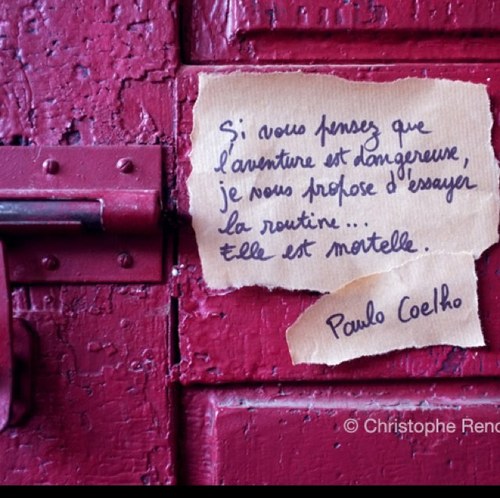 Si vous pensez que
l'aventure est dangereuse,
je vous propose d'essayer
la routine...
Elle est mortelle.
Paulo Coelho
© Christophe